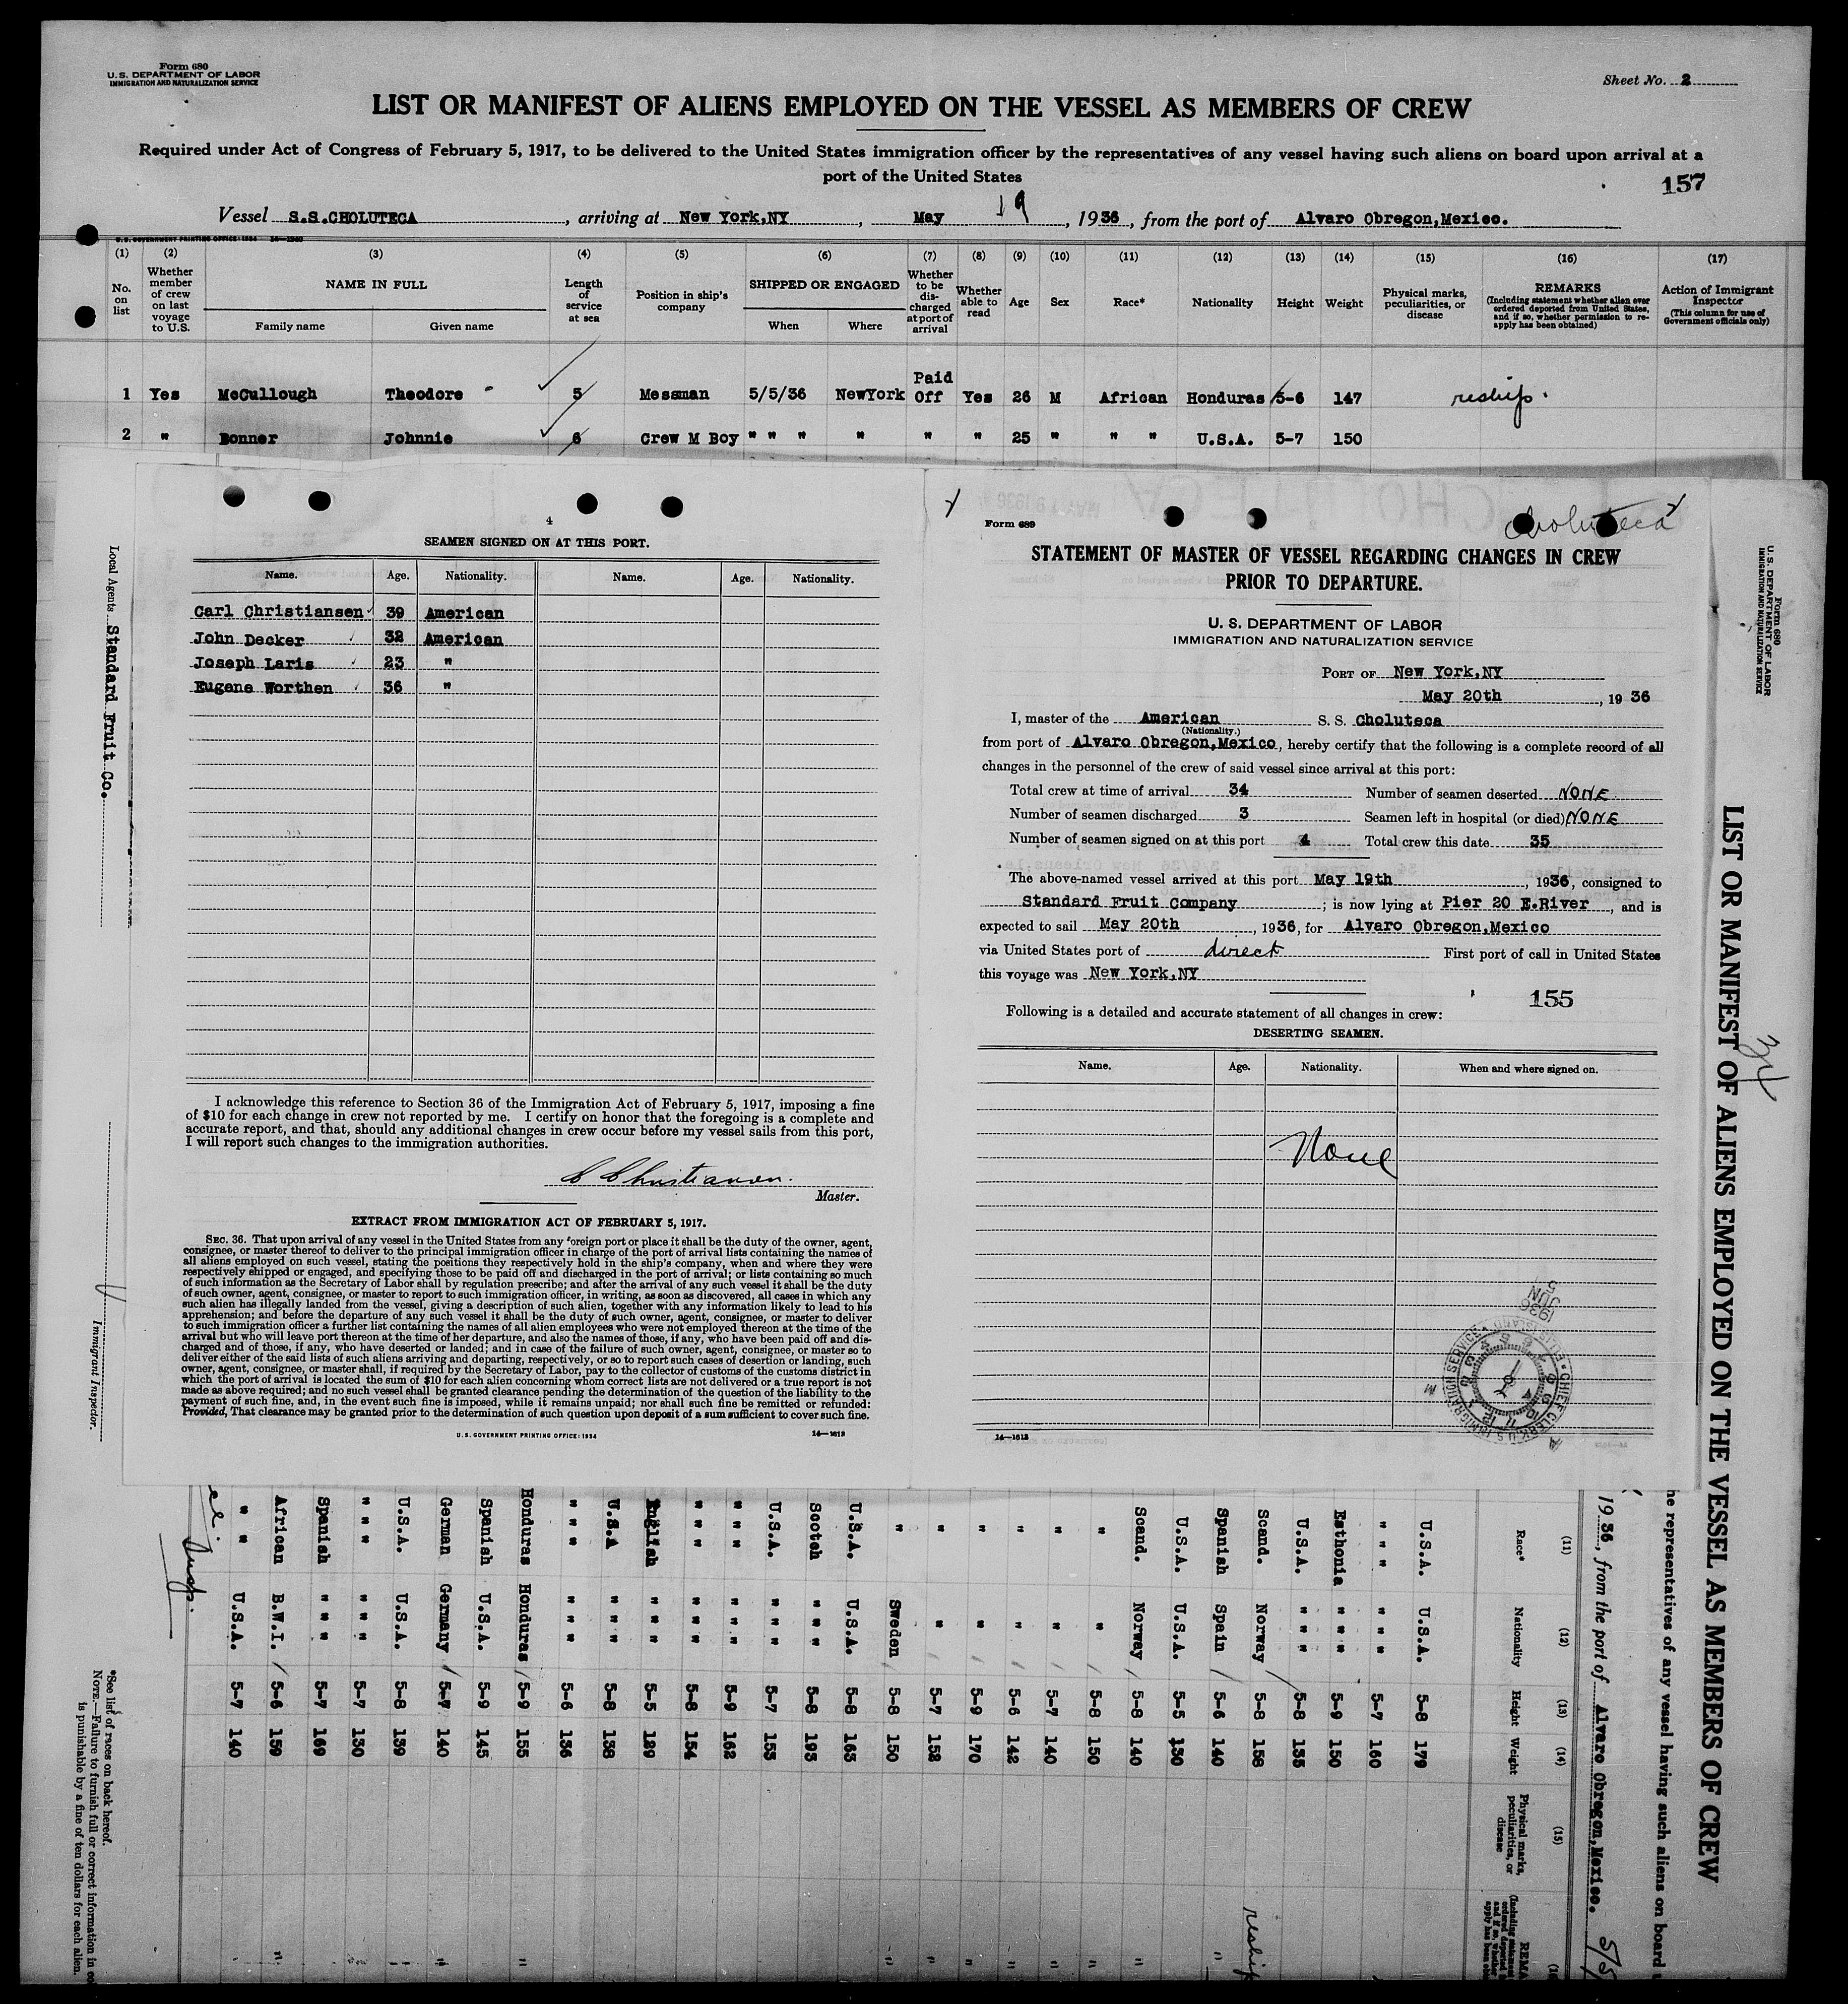 Form 680
U. S. DEPARTMENT OF LABOR
IMMIGRATION AND NATURALIZATION SERVICE
Sheet No. 2
LIST OR MANIFEST OF ALIENS EMPLOYED ON THE VESSEL AS MEMBERS OF CREW
Required under Act of Congress of February 5, 1917, to be delivered to the United States immigration officer by the representatives of any vessel having such aliens on board upon arrival at a
port of the United States
157
Vessel S.S.CHOLUTECA, arriving at New York,NY, May 19, 1936, from the port of Alvaro Obregon,Mexico.
U.S. GOVERNMENT PRINTING OFFICE: 1934
(1) (2) (3) (4) (5) (6) (7) (8) (9) (10) (11) (12) (13) (14) (15) (16) (17)
No. on list
Whether member of crew on last voyage to U.S.
NAME IN FULL
Family name Given name
Length of service at sea
Position in ship's company
SHIPPED OR ENGAGED
When Where
Whether to be discharged at port of arrival
Whether able to read
Age
Sex
Race*
Nationality
Height
Weight
Physical marks, peculiarities, or disease
REMARKS
(Including statement whether alien ever ordered deported from United States, and if so, whether permission to reapply has been obtained)
Action of Immigrant Inspector
(This column for use of Government officials only)
1 Yes McCullough Theodore 5 Messman 5/5/36 NewYork Paid Off Yes 26 M African Honduras 5-6 147 reship.
2 " Bonner Johnnie 6 Crew M Boy " " " " " " 25 " " " U.S.A. 5-7 150
4
SEAMEN SIGNED ON AT THIS PORT.
Name. Age. Nationality. Name. Age. Nationality.
Carl Christiansen 39 American
John Decker 32 American
Joseph Laris 23 "
Eugene Worthen 36 "
I acknowledge this reference to Section 36 of the Immigration Act of February 5, 1917, imposing a fine
of $10 for each change in crew not reported by me. I certify on honor that the foregoing is a complete and
accurate report, and that, should any additional changes in crew occur before my vessel sails from this port,
I will report such changes to the immigration authorities.
C Christiansen.
Master.
EXTRACT FROM IMMIGRATION ACT OF FEBRUARY 5, 1917.
SEC. 36. That upon arrival of any vessel in the United States from any foreign port or place it shall be the duty of the owner, agent,
consignee, or master thereof to deliver to the principal immigration officer in charge of the port of arrival lists containing the names of
all aliens employed on such vessel, stating the positions they respectively hold in the ship's company, when and where they were
respectively shipped or engaged, and specifying those to be paid off and discharged in the port of arrival; or lists containing so much
of such information as the Secretary of Labor shall by regulation prescribe; and after the arrival of any such vessel it shall be the duty
of such owner, agent, consignee, or master to report to such immigration officer, in writing, as soon as discovered, all cases in which any
such alien has illegally landed from the vessel, giving a description of such alien, together with any information likely to lead to his
apprehension; and before the departure of any such vessel it shall be the duty of such owner, agent, consignee, or master to deliver
to such immigration officer a further list containing the names of all alien employees who were not employed thereon at the time of the
arrival but who will leave port thereon at the time of her departure, and also the names of those, if any, who have been paid off and dis-
charged and of those, if any, who have deserted or landed; and in case of the failure of such owner, agent, consignee, or master so to
deliver either of the said lists of such aliens arriving and departing, respectively, or so to report such cases of desertion or landing, such
owner, agent, consignee, or master shall, if required by the Secretary of Labor, pay to the collector of customs of the customs district in
which the port of arrival is located the sum of $10 for each alien concerning whom correct lists are not delivered or a true report is not
made as above required; and no such vessel shall be granted clearance pending the determination of the question of the liability to the
payment of such fine, and, in the event such fine is imposed, while it remains unpaid; nor shall such fine be remitted or refunded:
Provided, That clearance may be granted prior to the determination of such question upon deposit of a sum sufficient to cover such fine.
U. S. GOVERNMENT PRINTING OFFICE: 1934 14—1613
Form 689
Choluteca
STATEMENT OF MASTER OF VESSEL REGARDING CHANGES IN CREW
PRIOR TO DEPARTURE.
U. S. DEPARTMENT OF LABOR
IMMIGRATION AND NATURALIZATION SERVICE
PORT OF New York,NY
May 20th, 1936
I, master of the American S. S. Choluteca
(Nationality.)
from port of Alvaro Obregon,Mexico, hereby certify that the following is a complete record of all
changes in the personnel of the crew of said vessel since arrival at this port:
Total crew at time of arrival 34 Number of seamen deserted NONE
Number of seamen discharged 3 Seamen left in hospital (or died) NONE
Number of seamen signed on at this port 4 Total crew this date 35
The above-named vessel arrived at this port May 19th, 1936, consigned to
Standard Fruit Company; is now lying at Pier 20 E.River, and is
expected to sail May 20th, 1936, for Alvaro Obregon,Mexico
via United States port of direct First port of call in United States
this voyage was New York,NY
155
Following is a detailed and accurate statement of all changes in crew:
DESERTING SEAMEN.
Name. Age. Nationality. When and where signed on.
None
1936 JUN 5
CHIEF CLERK U.S. IMMIGRATION SERVICE ELLIS ISLAND
14—1613
Local Agents Standard Fruit Co.
Immigrant Inspector.
Form 680
U. S. DEPARTMENT OF LABOR
IMMIGRATION AND NATURALIZATION SERVICE
LIST OR MANIFEST OF ALIENS EMPLOYED ON THE VESSEL AS MEMBERS OF CREW
he representatives of any vessel having such aliens on board
1936, from the port of Alvaro Obregon,Mexico.
(11) (12) (13) (14) (15)
Race* Nationality Height Weight Physical marks, peculiarities, or disease
U.S.A. U.S.A. 5-8 179
" " " " " " 5-7 160
Esthonia " " " 5-9 150
U.S.A. " " " 5-8 135
Scand. Norway 5-8 158 reship
Spanish Spain 5-6 140
U.S.A. U.S.A. 5-5 130
Scand. Norway 5-8 140
" " 5-8 150
" " 5-7 140
" " 5-6 142
" " 5-9 170
" " 5-7 152
" Sweden 5-8 150
U.S.A. U.S.A. 5-8 163
Scotch " " " 5-8 193
U.S.A. " " " 5-7 153
" " " " " 5-9 162
" " " " " 5-8 154
English " " " 5-5 129
U.S.A " " " 5-8 138
" " " " " " 5-6 136
Honduras Honduras 5-9 155
Spanish U.S.A. 5-9 145
German Germany 5-7 140
U.S.A. U.S.A. 5-8 139
" " " " " " 5-7 130
Spanish " " " 5-7 169
African B.W.I. 5-6 159
" " U.S.A. 5-7 140
Insp.
*See list of races on back hereof.
NOTE.—Failure to furnish full or correct information in
is punishable by a fine of ten dollars for each alien.